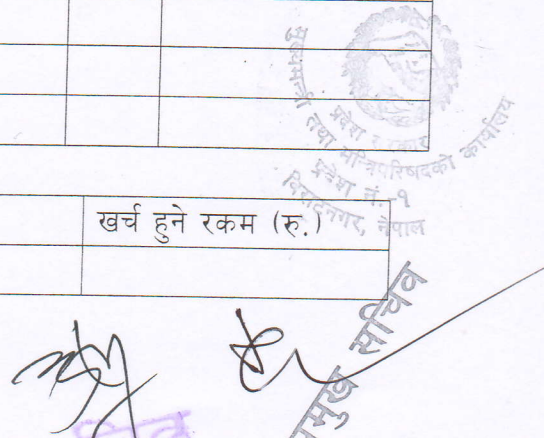 मुख्यमन्त्री तथा मन्त्रिपरिषदको कार्यालय
प्रदेश सरकार
प्रदेश नं. १
विराटनगर, नेपाल
खर्च हुने रकम (रु.)
प्रमुख सचिव